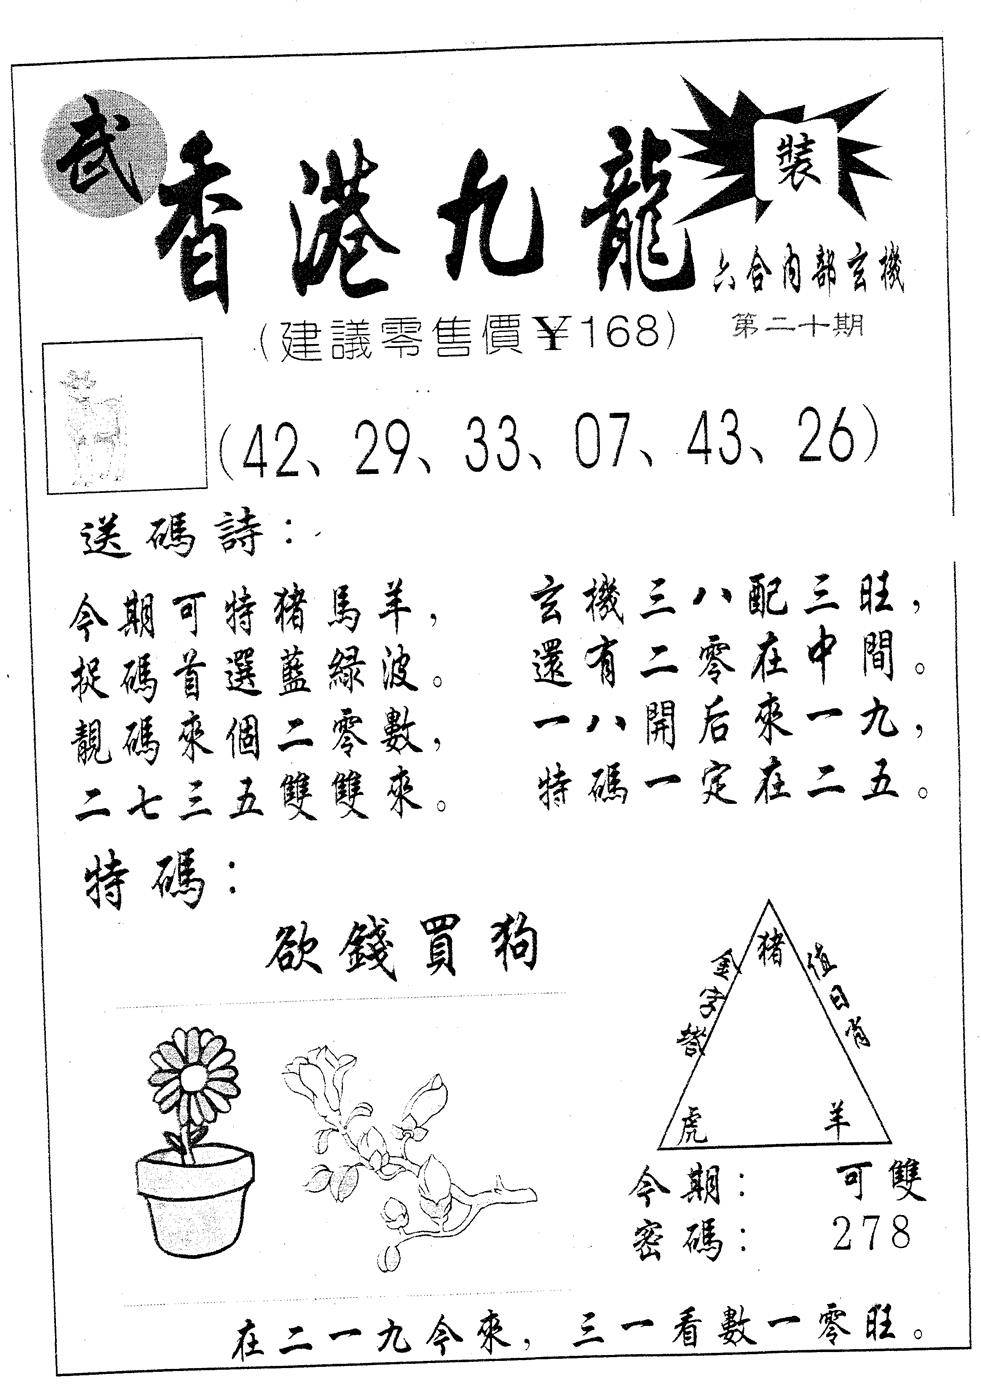 武
香港九龍
裝
六合内部玄機
(建議零售價¥168)
第二十期
(42、29、33、07、43、26)
送碼詩：
今期可特猪馬羊，
捉碼首選藍綠波。
靚碼來個二零數，
二七三五雙雙來。
玄機三八配三旺，
還有二零在中間。
一八開后來一九，
特碼一定在二五。
特碼：
欲錢買狗
金字塔
猪
值日肖
虎
羊
今期： 可雙
密碼： 278
在二一九今來，三一看數一零旺。